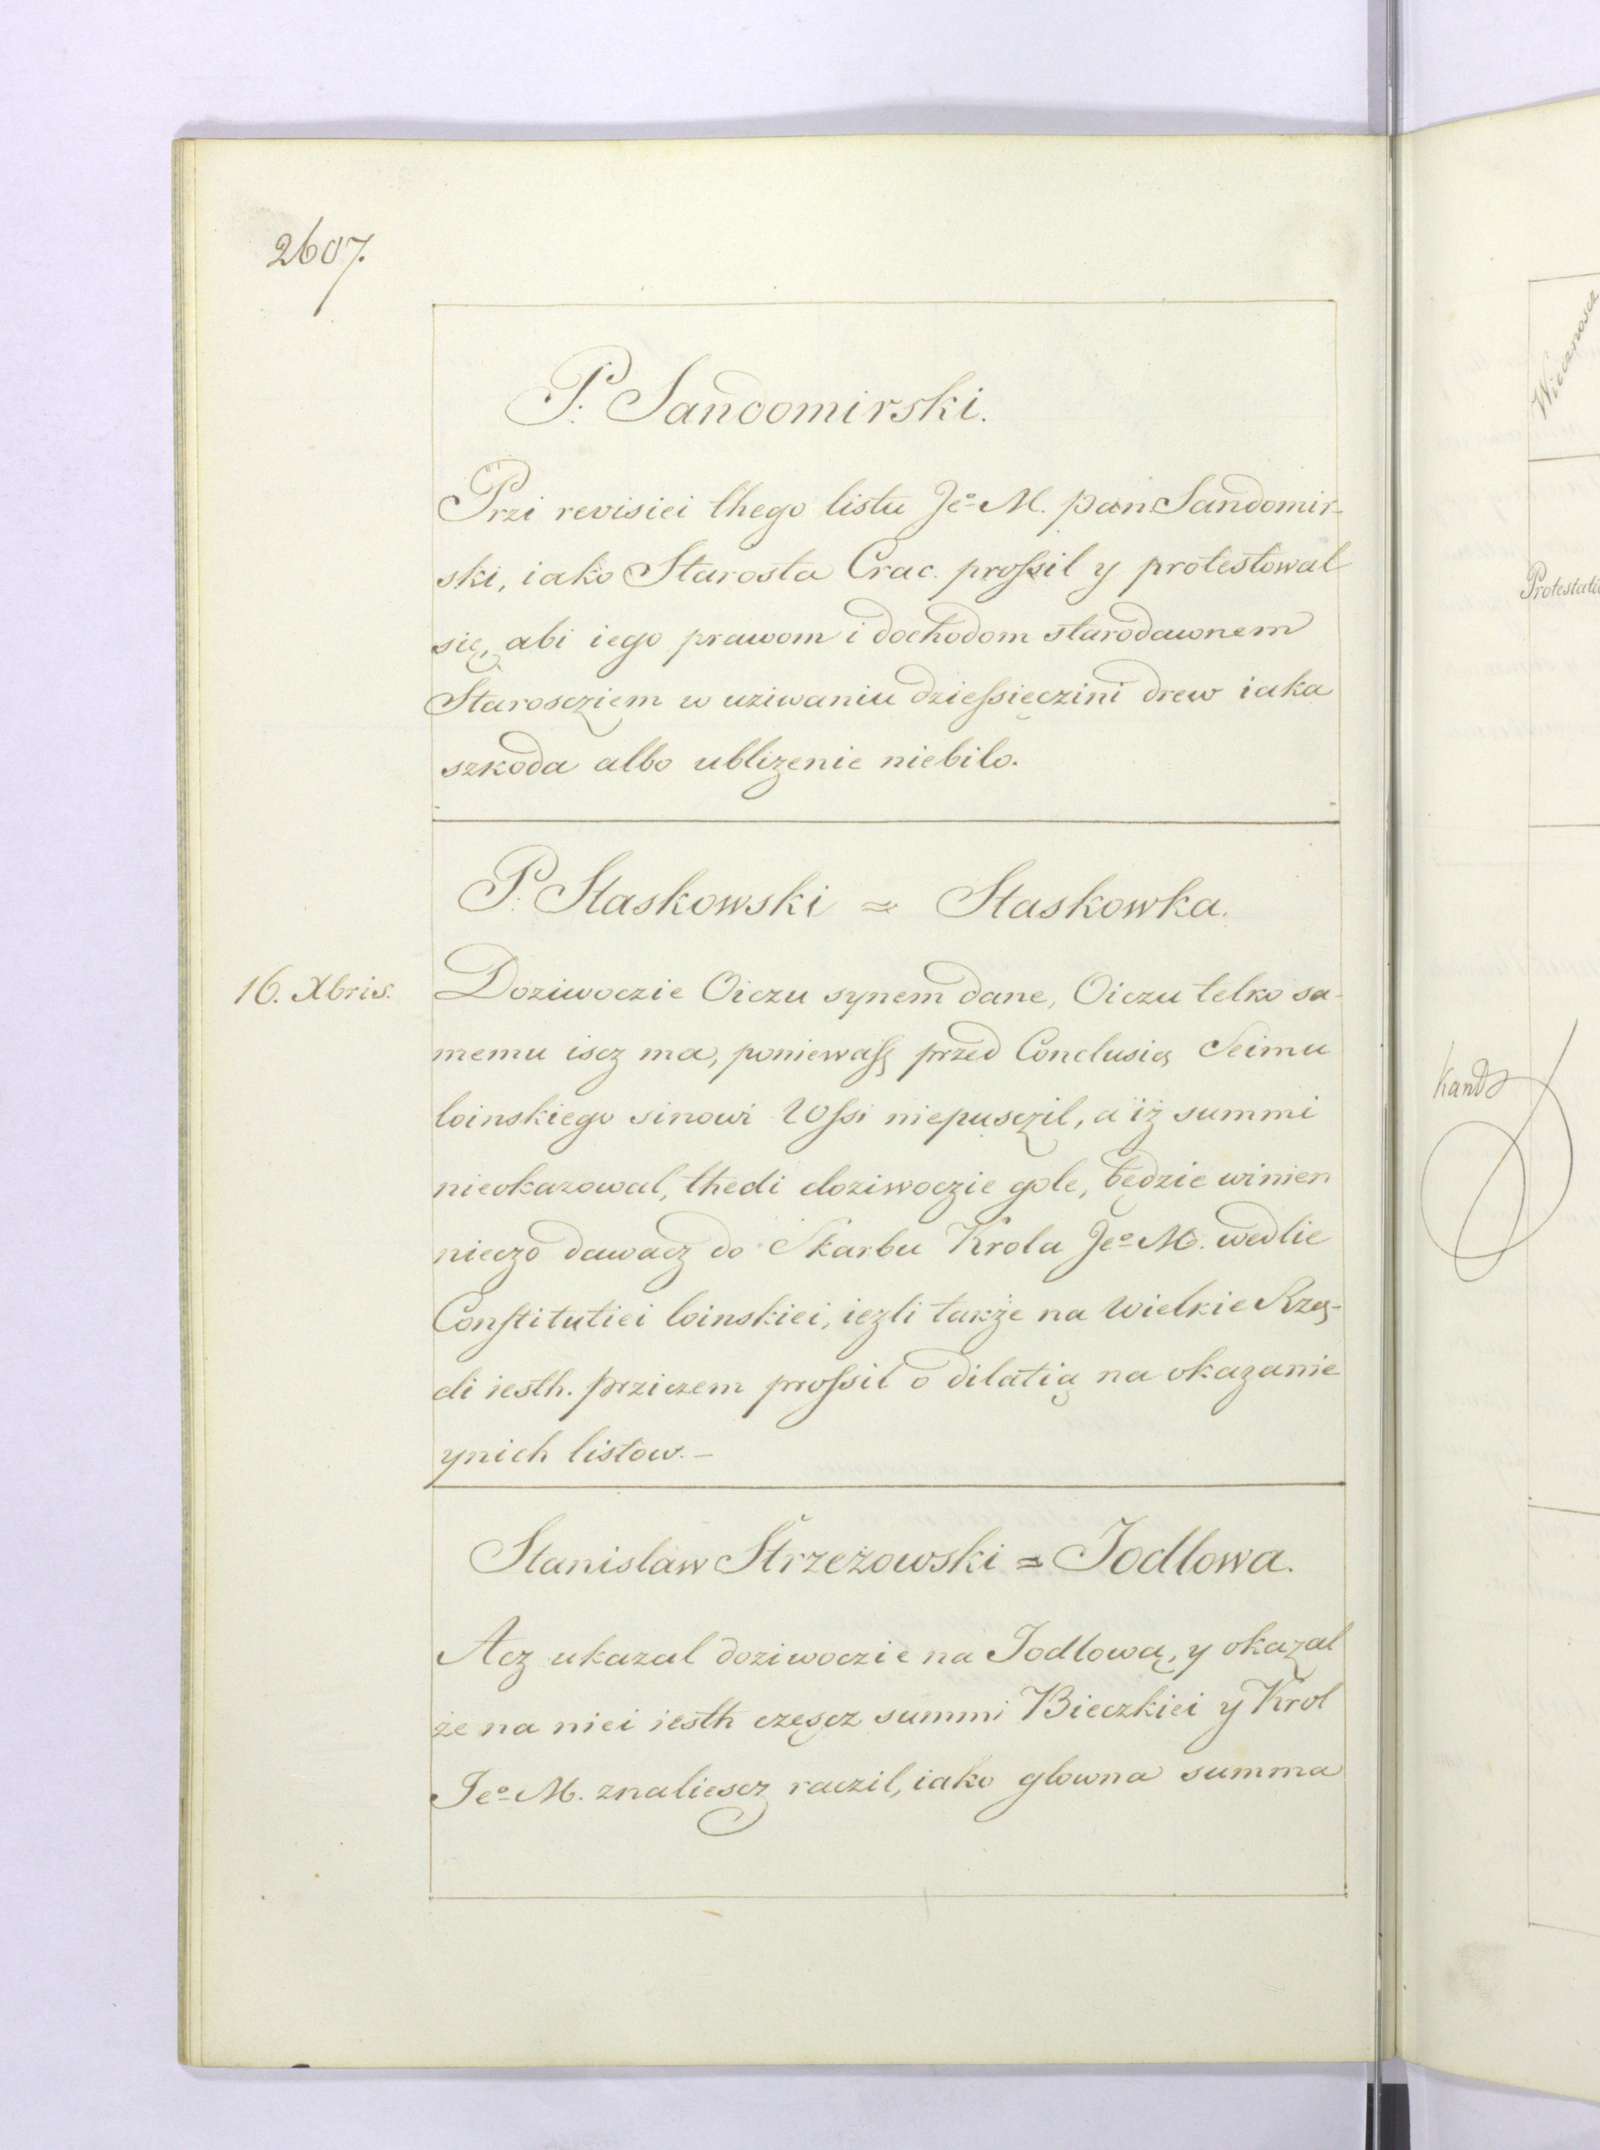 2607.
P. Sandomirski.
Przi revisiei thego listu Jeº M. pan Sandomir-
ski, iako Starosta Crac. prossil y protestowal
się, abi iego prawom i dochodom starodawnem
Starosczięm w uziwaniu dziessięczini drew iaka
szkoda albo ublizenie niebilo.
P. Staskowski = Staskowka.
16. Xbris.
Doziwoczie Oiczu synem dane, Oiczu telko sa-
memu iscz ma, poniewasz przed Conclusią Seimu
loinskiego sinowi Wssi niepusczil, a iż summi
nieokazowal, thedi doziwoczie gole, będzie winien
nieczo dawacz do Skarbu Krola Jeº M. wedlie
Constitutiei loinskiei, iezli także na Wielkie Rzą-
di iesth. prziczem prossil o dilatią na okazanie
ynich listow. –
Stanislaw Strzeżowski = Jodlowa.
Acz ukazal doziwoczie na Jodlową, y okazal
że na niei iesth częscz summi Bieczkiei y Krol
Jeº M. znaliescz raczil, iako glowna summa
Protestatio